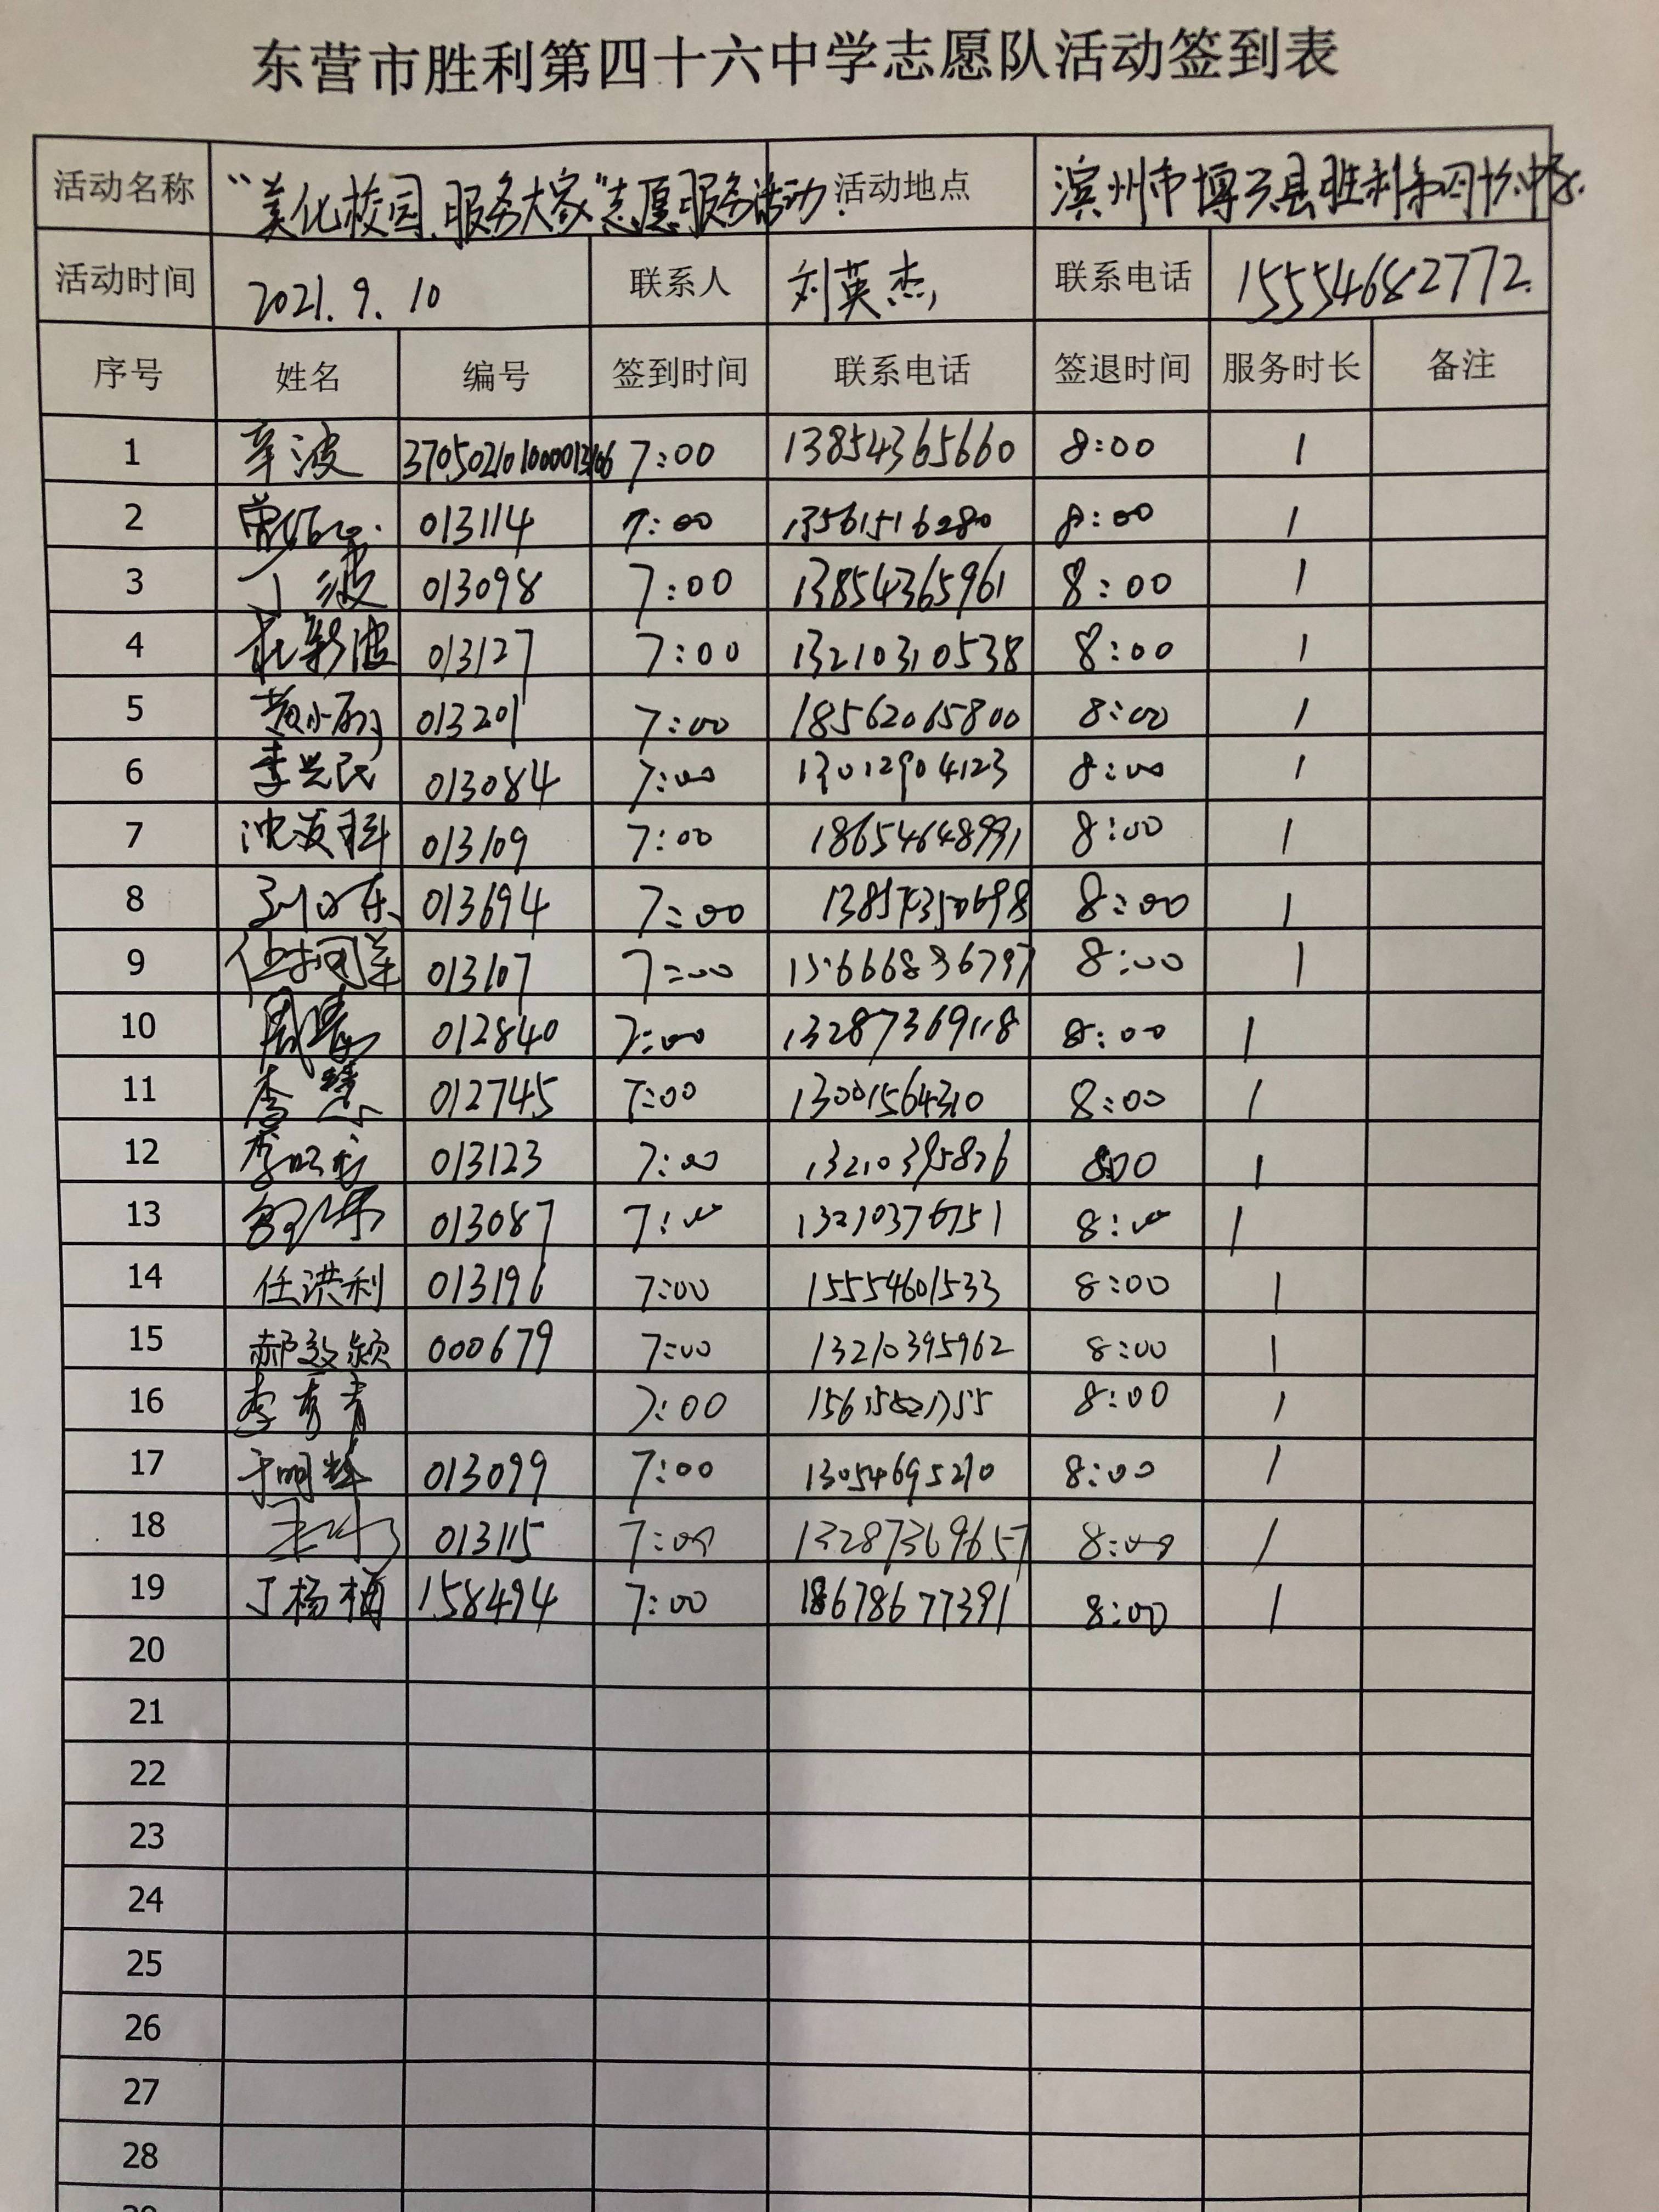 东营市胜利第四十六中学志愿队活动签到表
活动名称 “美化校园、服务大家”志愿服务活动. 活动地点 滨州市博兴县胜利第四十六中学.
活动时间 2021.9.10 联系人 刘英杰 联系电话 15554682772.
序号 姓名 编号 签到时间 联系电话 签退时间 服务时长 备注
1 辛波 7:00 13854365660 8:00 1
2 013114 7:00 13561516280 8:00 1
3 丁波 013098 7:00 13854365961 8:00 1
4 013127 7:00 13210310538 8:00 1
5 013201 7:00 18562065800 8:00 1
6 李兴民 013084 7:00 13012904123 8:00 1
7 沈发科 013109 7:00 18654648991 8:00 1
8 013694 7:00 8:00 1
9 013107 7:00 15666836797 8:00 1
10 012840 7:00 13287369118 8:00 1
11 李慧 012745 7:00 13001564310 8:00 1
12 013123 7:00 13210395826 8:00 1
13 013087 7:00 13210376751 8:00 1
14 任洪利 013196 7:00 15554601533 8:00 1
15 郝效颍 000679 7:00 13210395962 8:00 1
16 李秀青 7:00 8:00 1
17 于明辉 013099 7:00 13054695210 8:00 1
18 013115 7:00 13287369657 8:00 1
19 丁杨楠 158494 7:00 18678677391 8:00 1
20
21
22
23
24
25
26
27
28